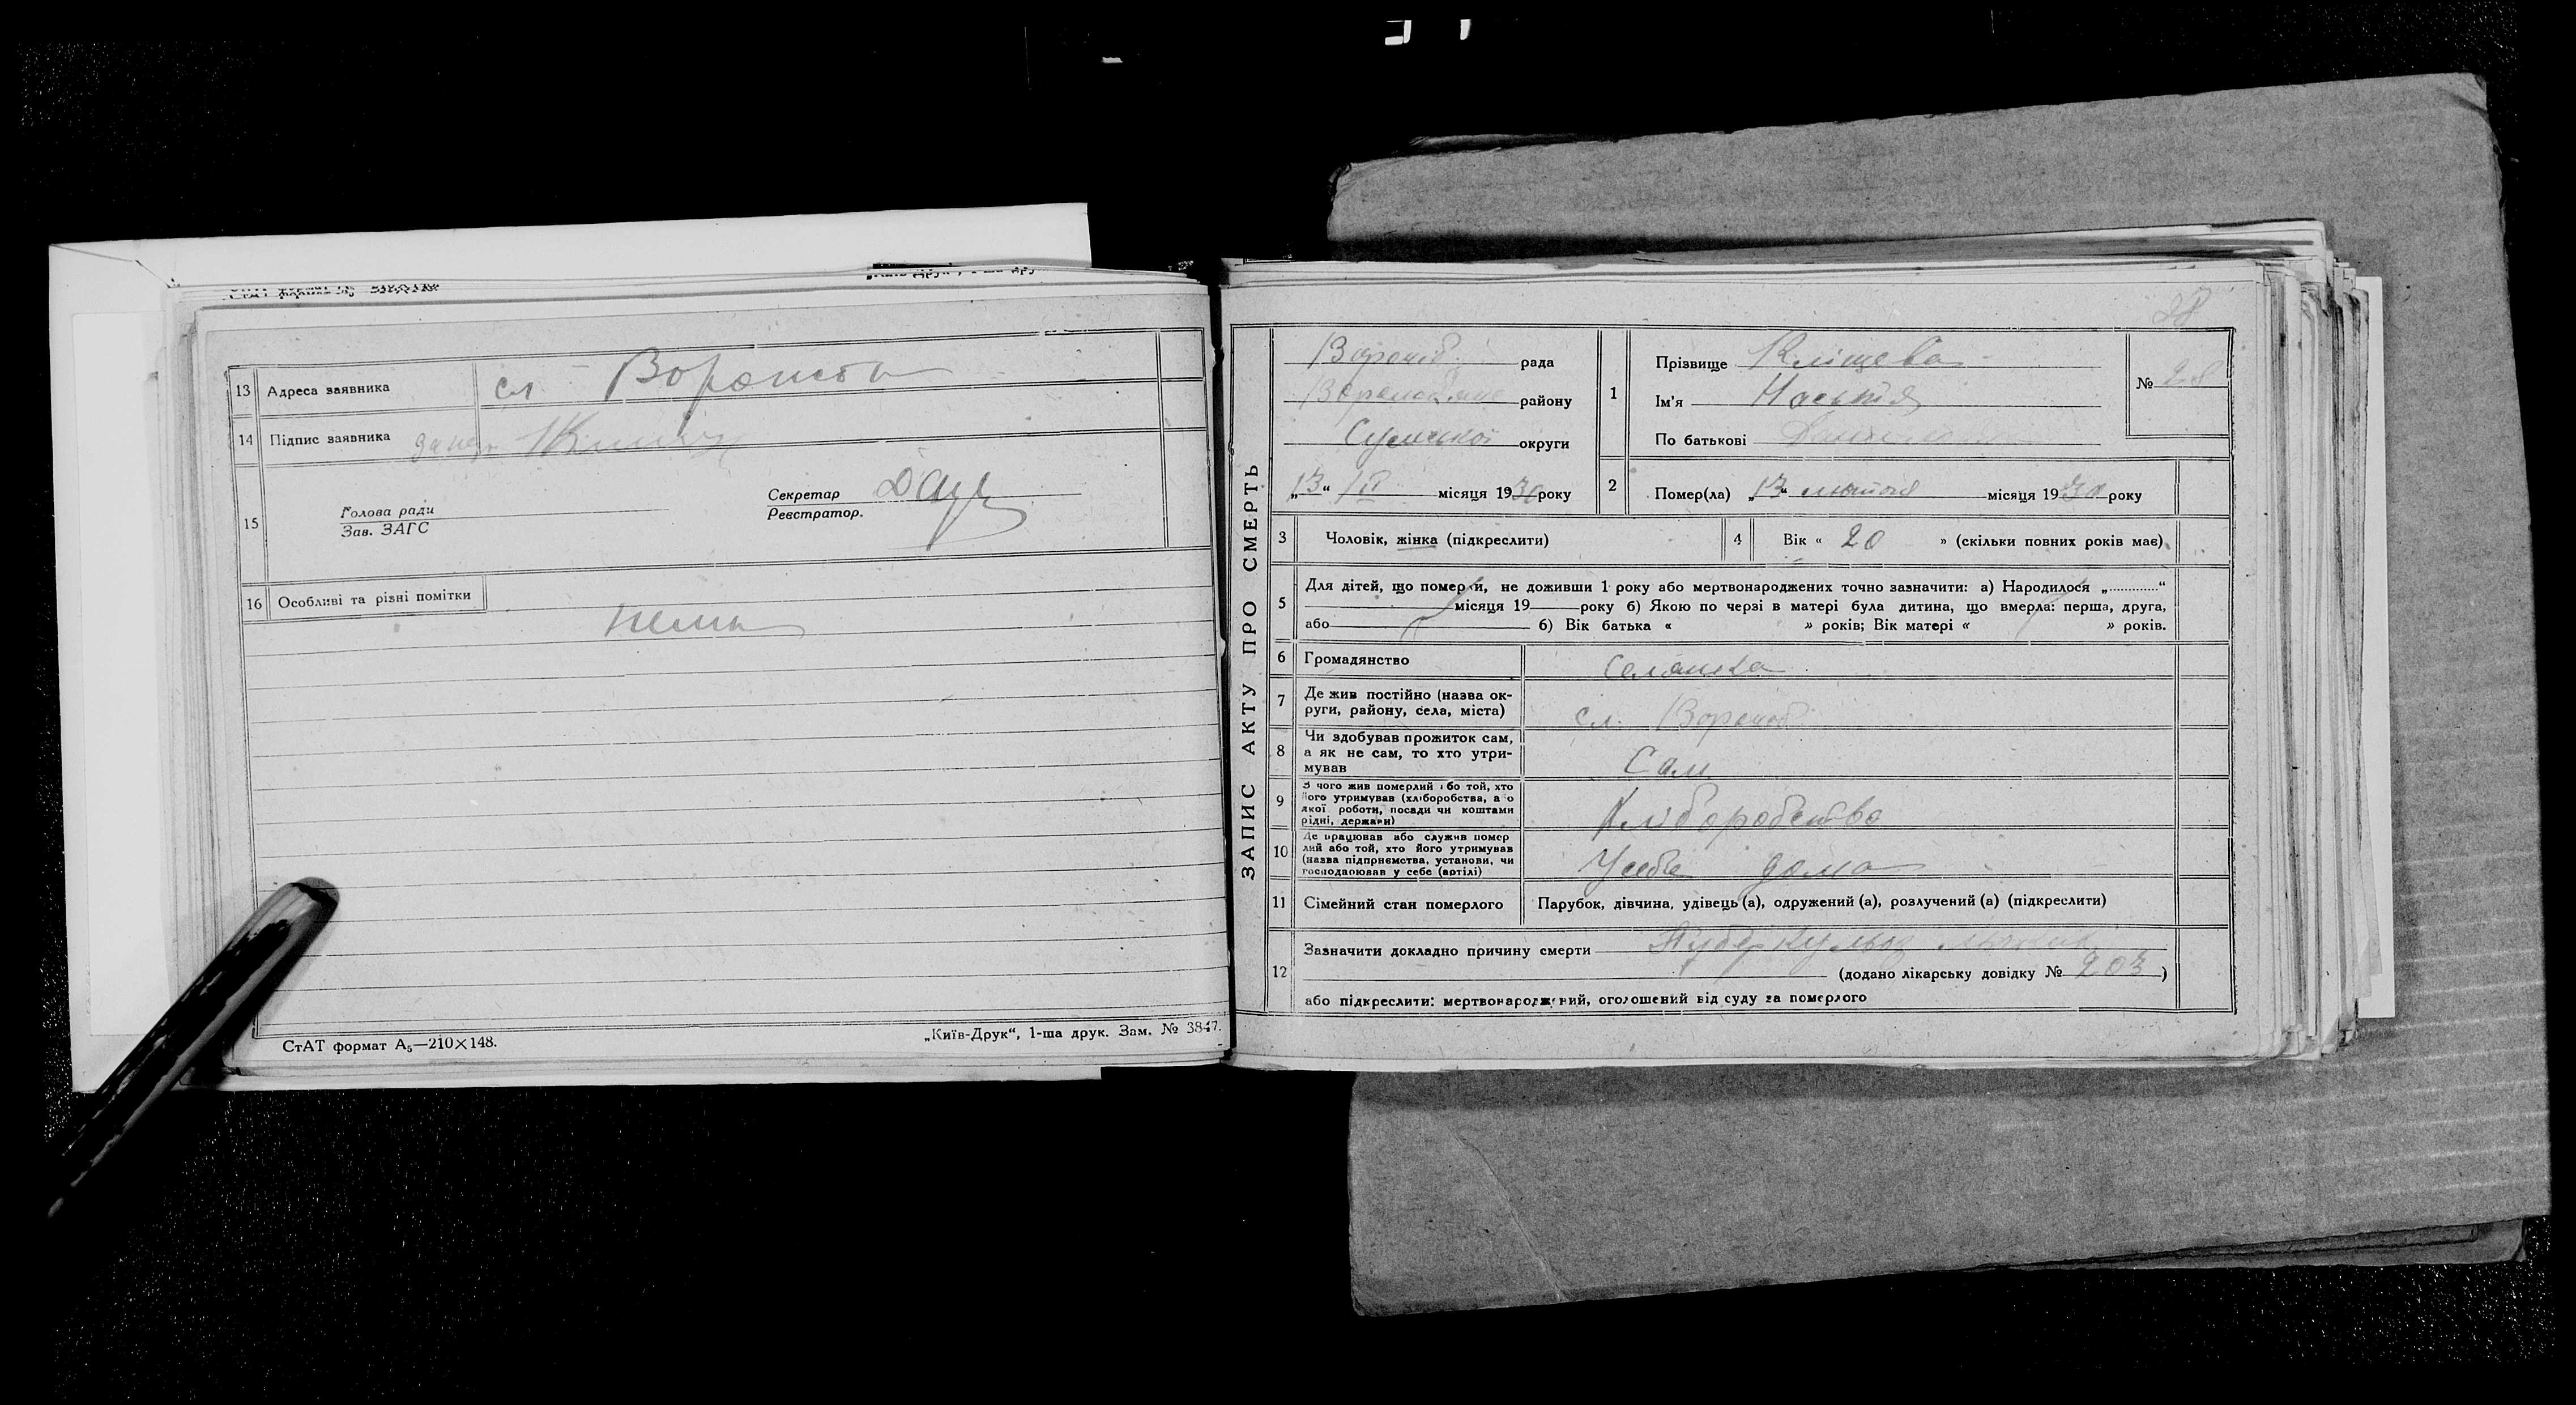 13 Адреса заявника сл Вороніж
14 Підпис заявника
15
Голова ради
Зав. ЗАГС
Секретар
Реєстратор.
16 Особливі та різні помітки
нема
СтАТ формат А₅—210×148.
„Київ-Друк“, 1-ша друк. Зам. № 3847.
28
ЗАПИС АКТУ ПРО СМЕРТЬ
рада
району
Сумської округи
„13“ II місяця 1930 року
1 Прізвище Кліщева
Ім'я Настя
По батькові
№ 28
2 Помер(ла) „13“ лютого місяця 1930 року
3 Чоловік, жінка (підкреслити)
4 Вік « 20 » (скільки повних років має)
5 Для дітей, що померли, не доживши 1 року або мертвонароджених точно зазначити: а) Народилося „............“
місяця 19 року б) Якою по черзі в матері була дитина, що вмерла: перша, друга,
або б) Вік батька « » років; Вік матері « » років.
6 Громадянство Селянка
7 Де жив постійно (назва ок-
руги, району, села, міста) сл. Вороніж
8 Чи здобував прожиток сам,
а як не сам, то хто утри-
мував Сам
9 З чого жив померлий або той, хто
його утримував (хліборобства, або
якої роботи, посади чи коштами
рідні, держави) Хліборобство
10 Де працював або служив помер
лий або той, хто його утримував
(назва підприємства, установи, чи
господарював у себе (артілі) У себе дома
11 Сімейний стан померлого Парубок, дівчина, удівець (а), одружений (а), розлучений (а) (підкреслити)
12 Зазначити докладно причину смерти Туберкульоз
(додано лікарську довідку № 203)
або підкреслити: мертвонароджений, оголошений від суду за померлого